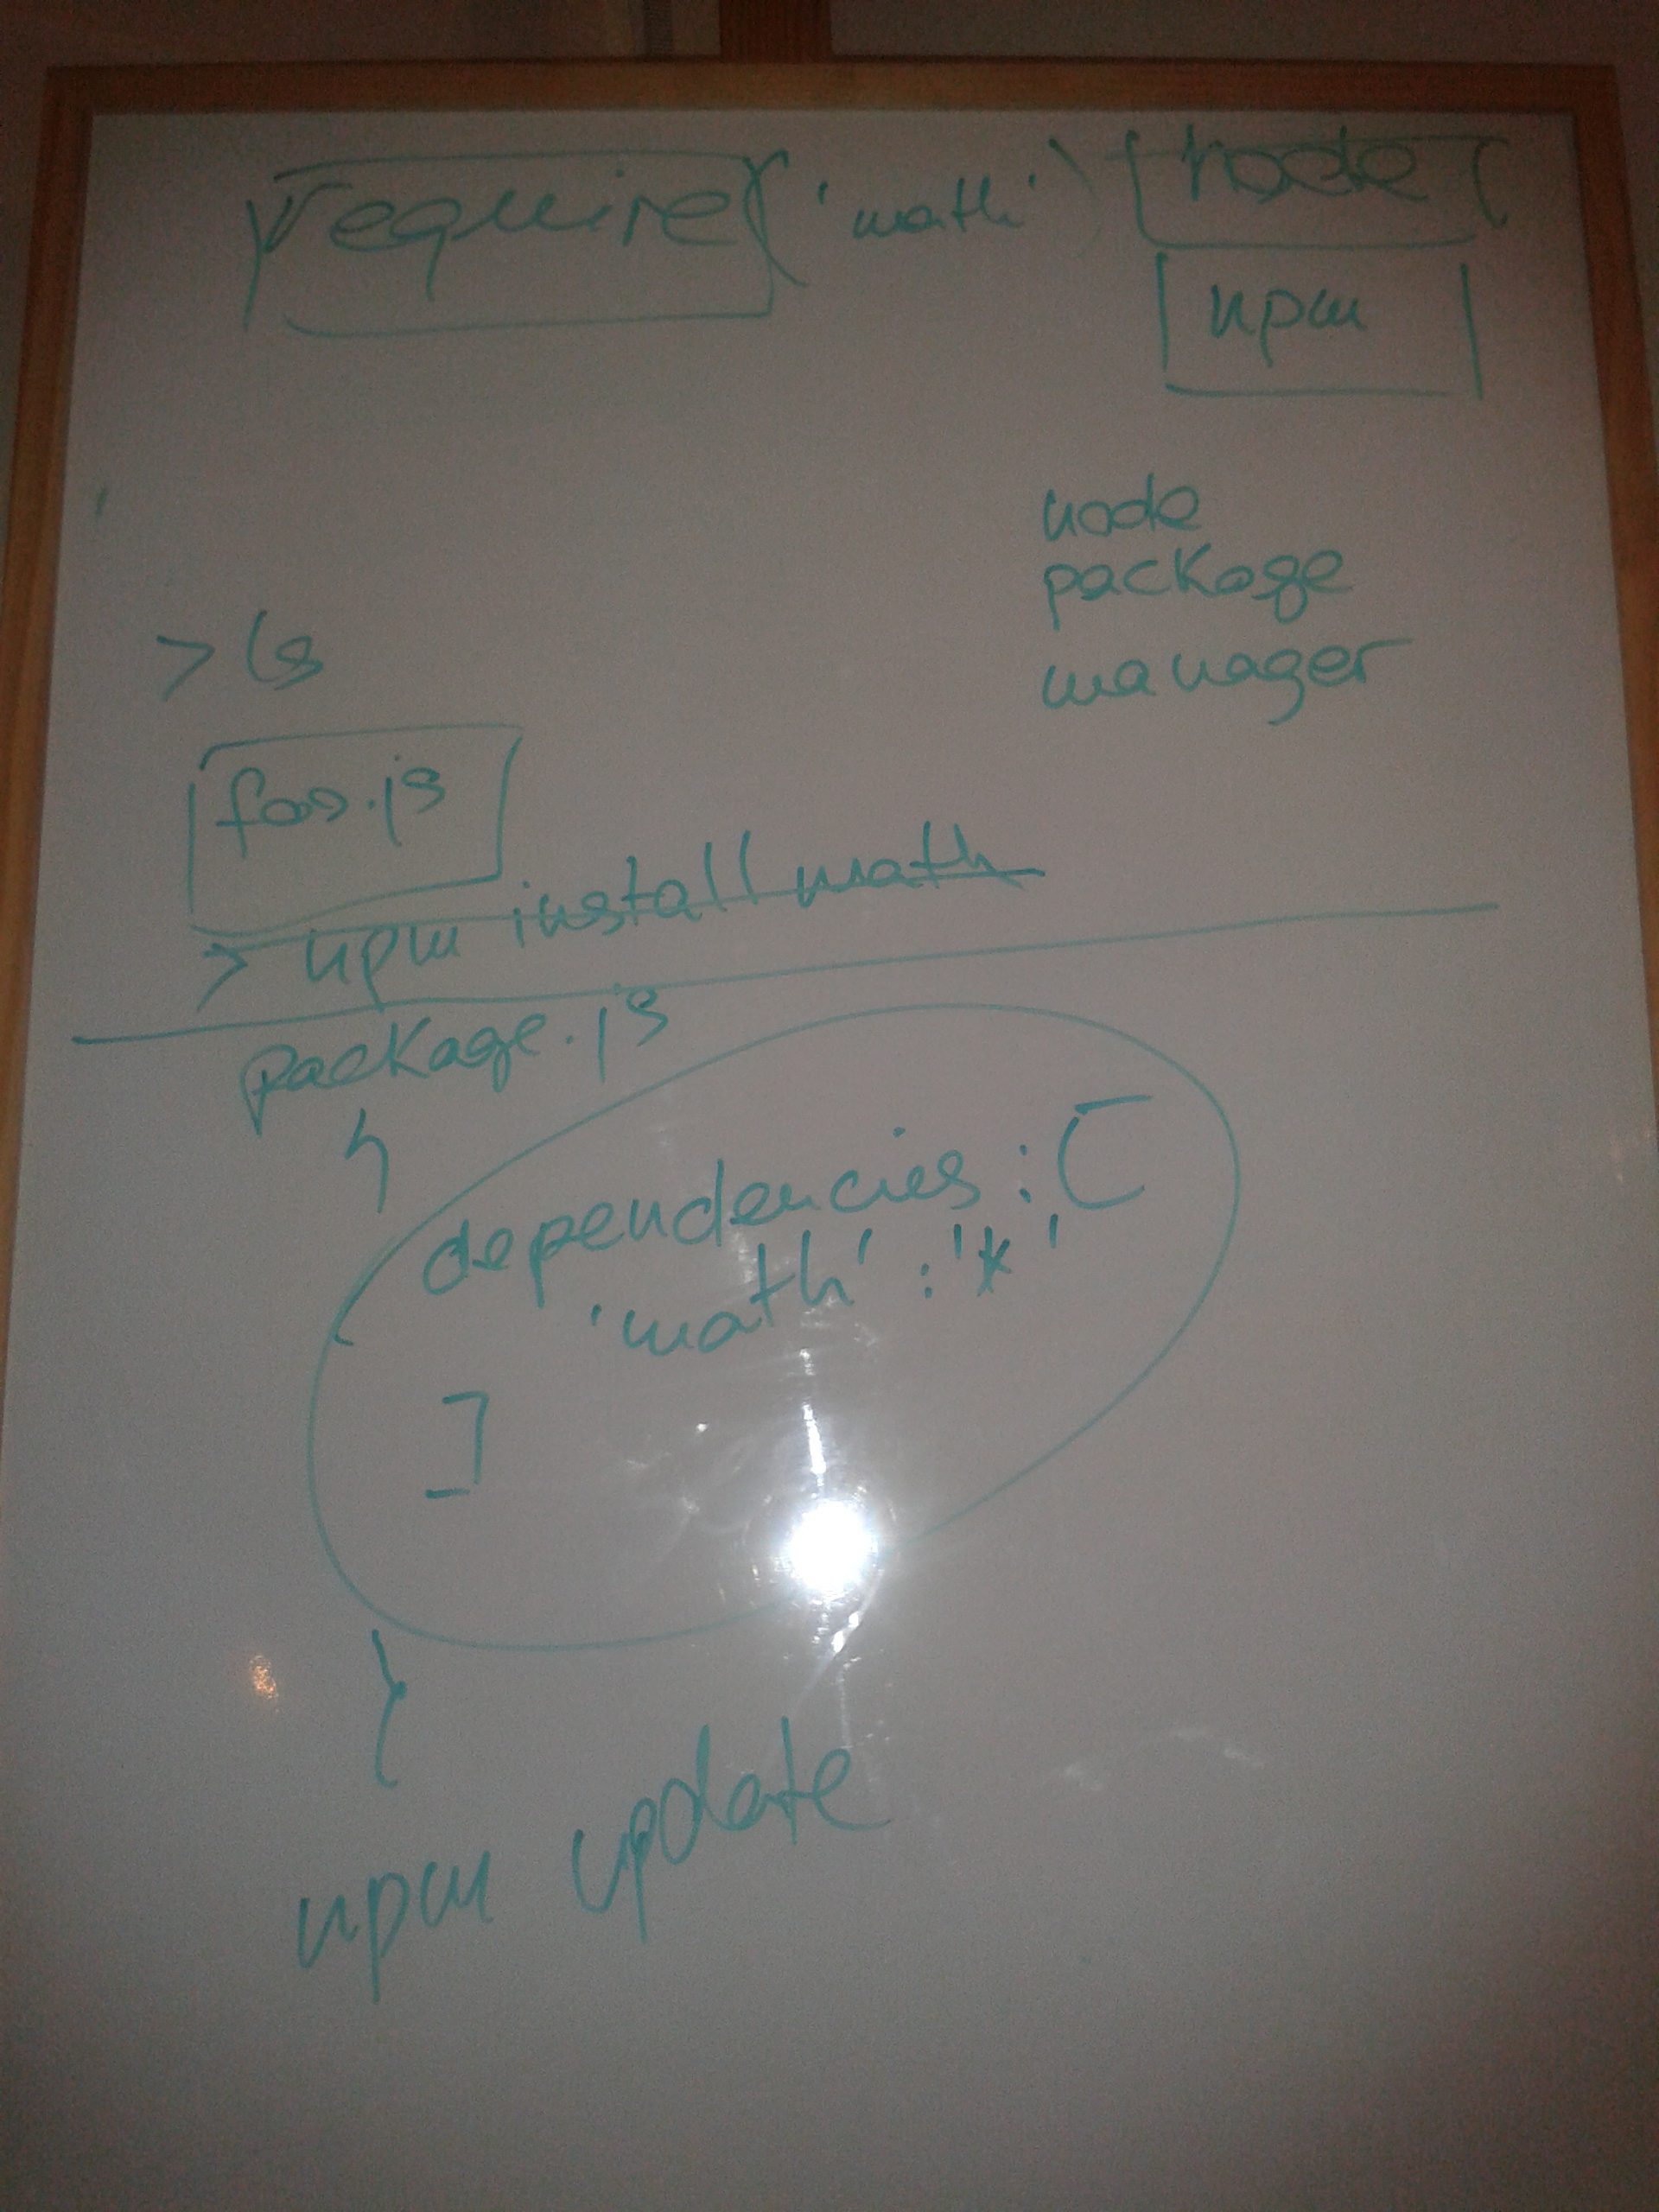 require('math')
node
npm
node
package
manager
> ls
foo.js
> npm install math
package.js
{
dependencies : [
'math' : '*'
]
}
npm update